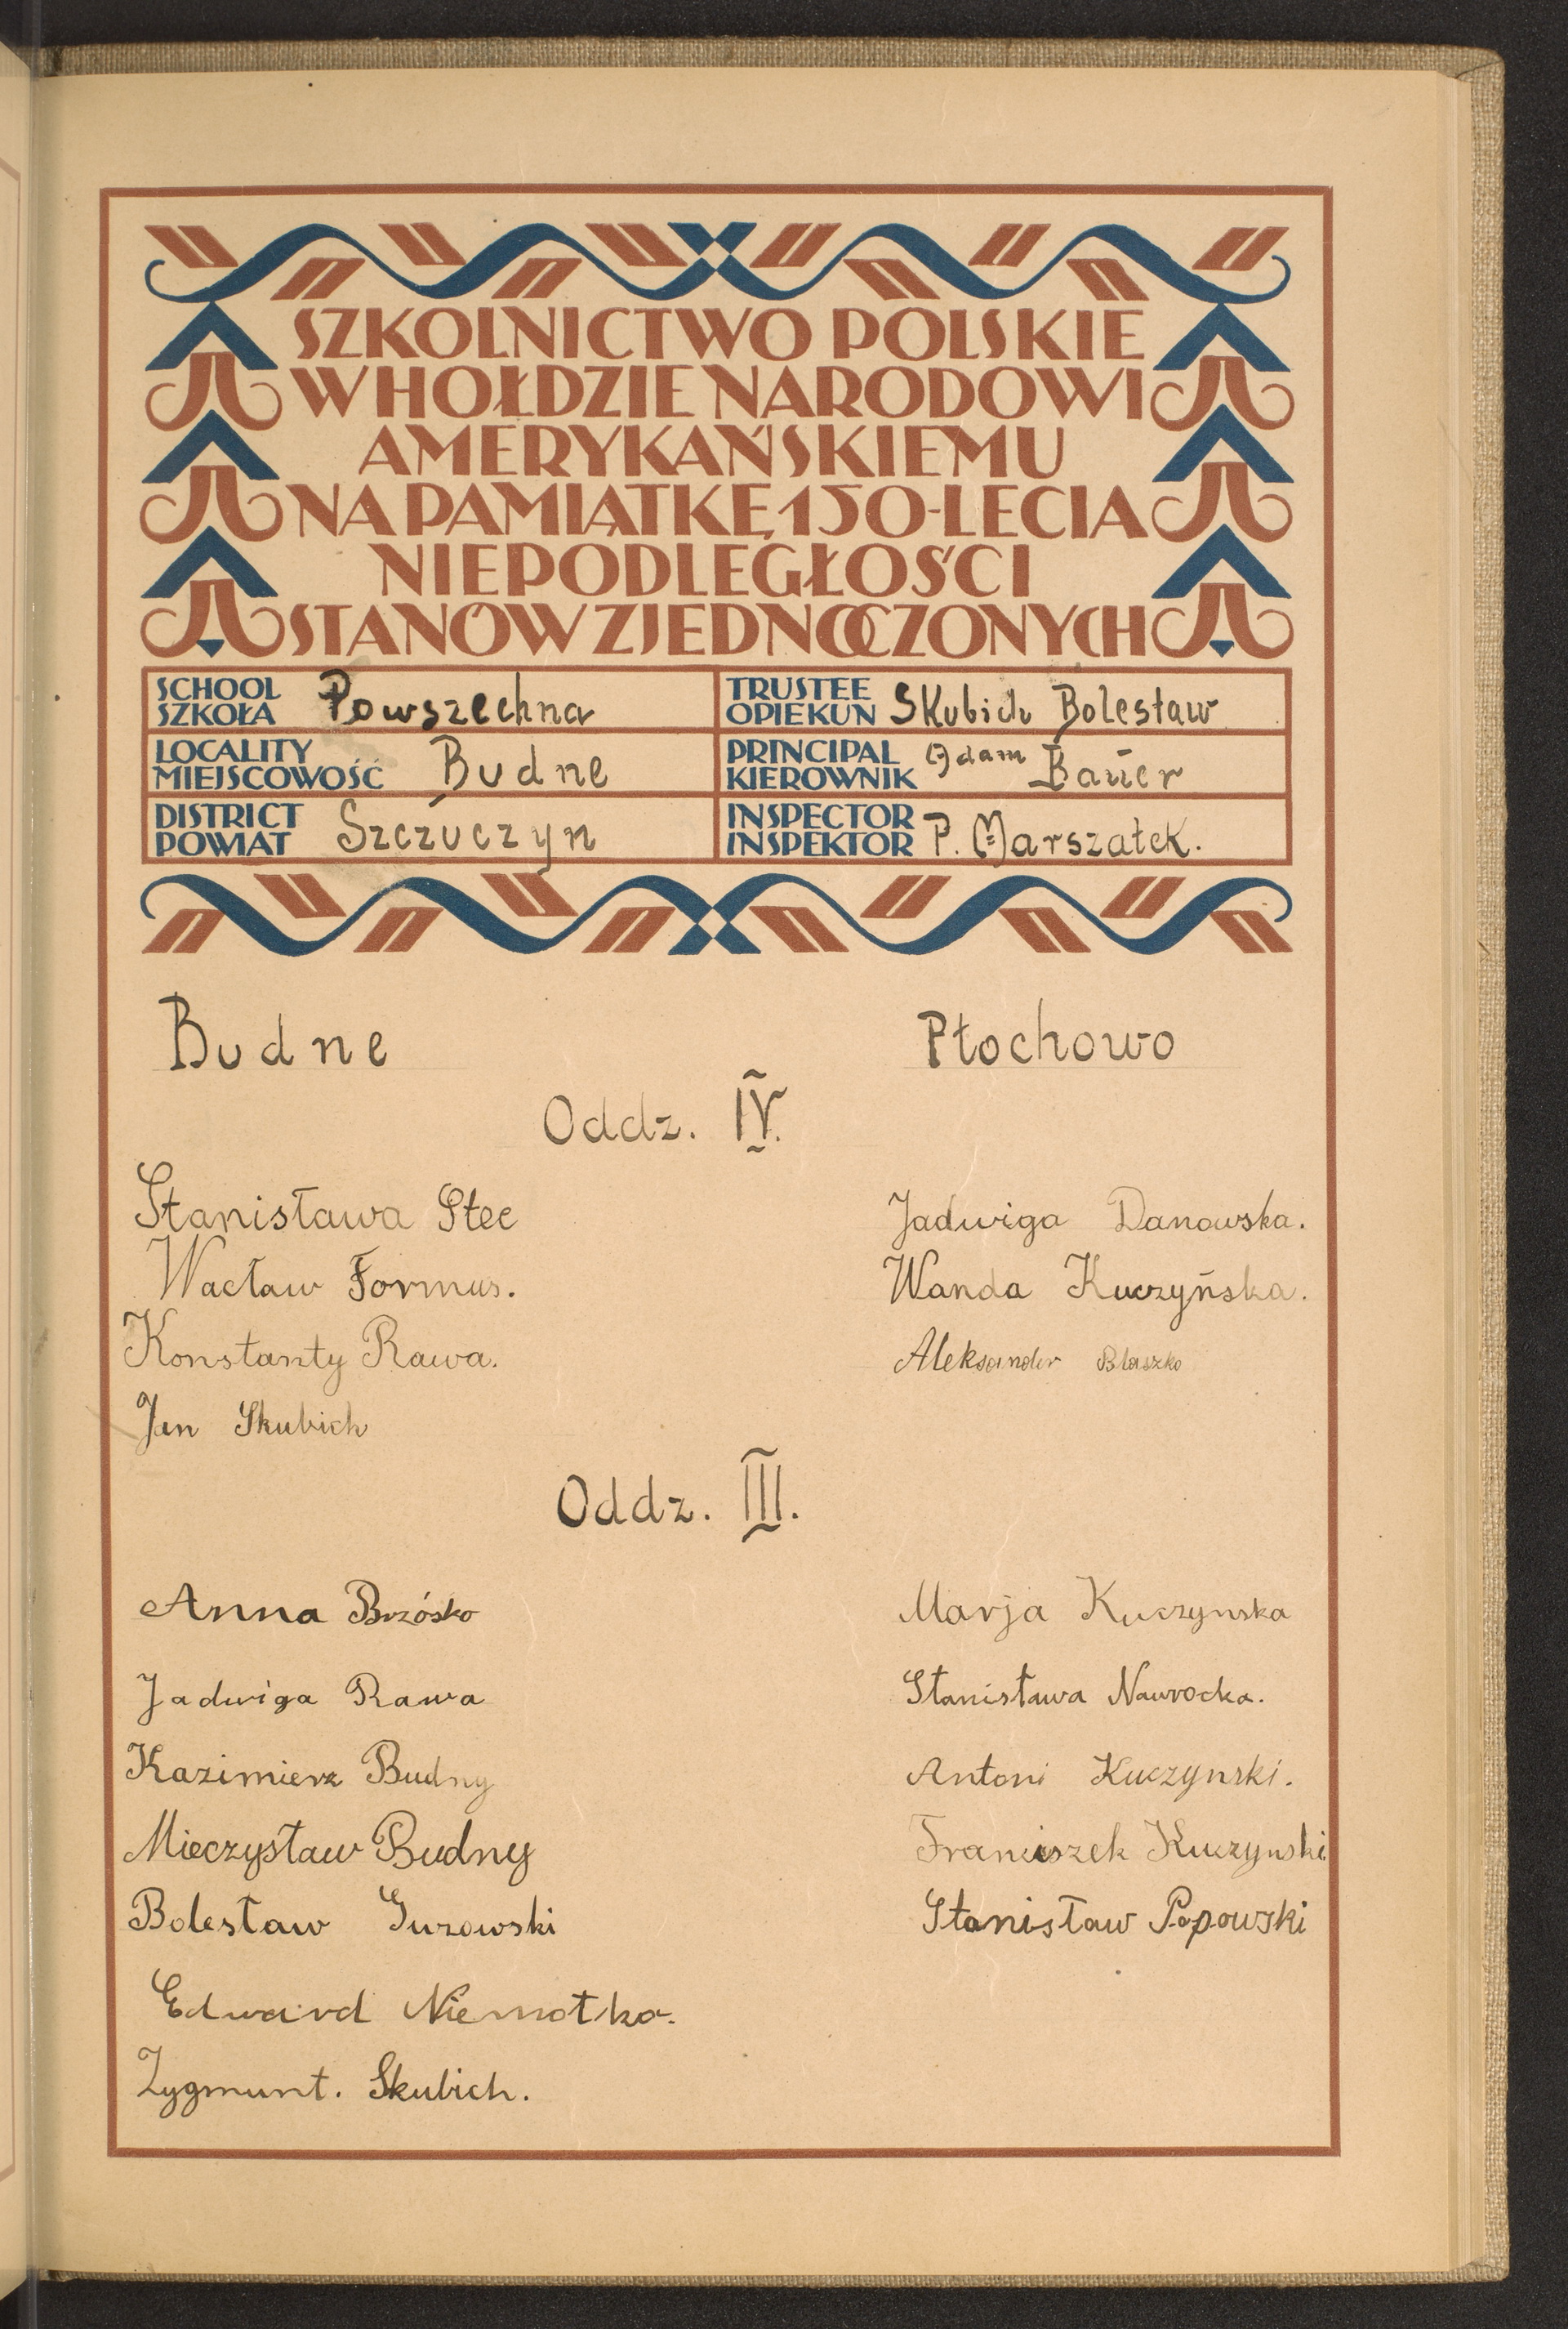 SZKOLNICTWO POLSKIE
W HOŁDZIE NARODOWI
AMERYKAŃSKIEMU
NA PAMIĄTKĘ 150-LECIA
NIEPODLEGŁOŚCI
STANÓW ZJEDNOCZONYCH
SCHOOL
SZKOŁA Powszechna
TRUSTEE
OPIEKUN Skubich Bolesław
LOCALITY
MIEJSCOWOŚĆ Budne
PRINCIPAL
KIEROWNIK Adam Bauer
DISTRICT
POWIAT Szczuczyn
INSPECTOR
INSPEKTOR P. Marszałek.
Budne Płochowo
Oddz. IV.
Stanisława Stec Jadwiga Danowska.
Wacław Formus. Wanda Kuczyńska.
Konstanty Rawa. Aleksander Blaszko
Jan Skubich
Oddz. III.
Anna Brzósko Marja Kuczynska
Jadwiga Rawa Stanisława Nawrocka.
Kazimierz Budny Antoni Kuczynski.
Mieczysław Budny Franciszek Kuczynski
Bolesław Guzowski Stanisław Popowski
Edward Niemotko.
Zygmunt. Skubich.